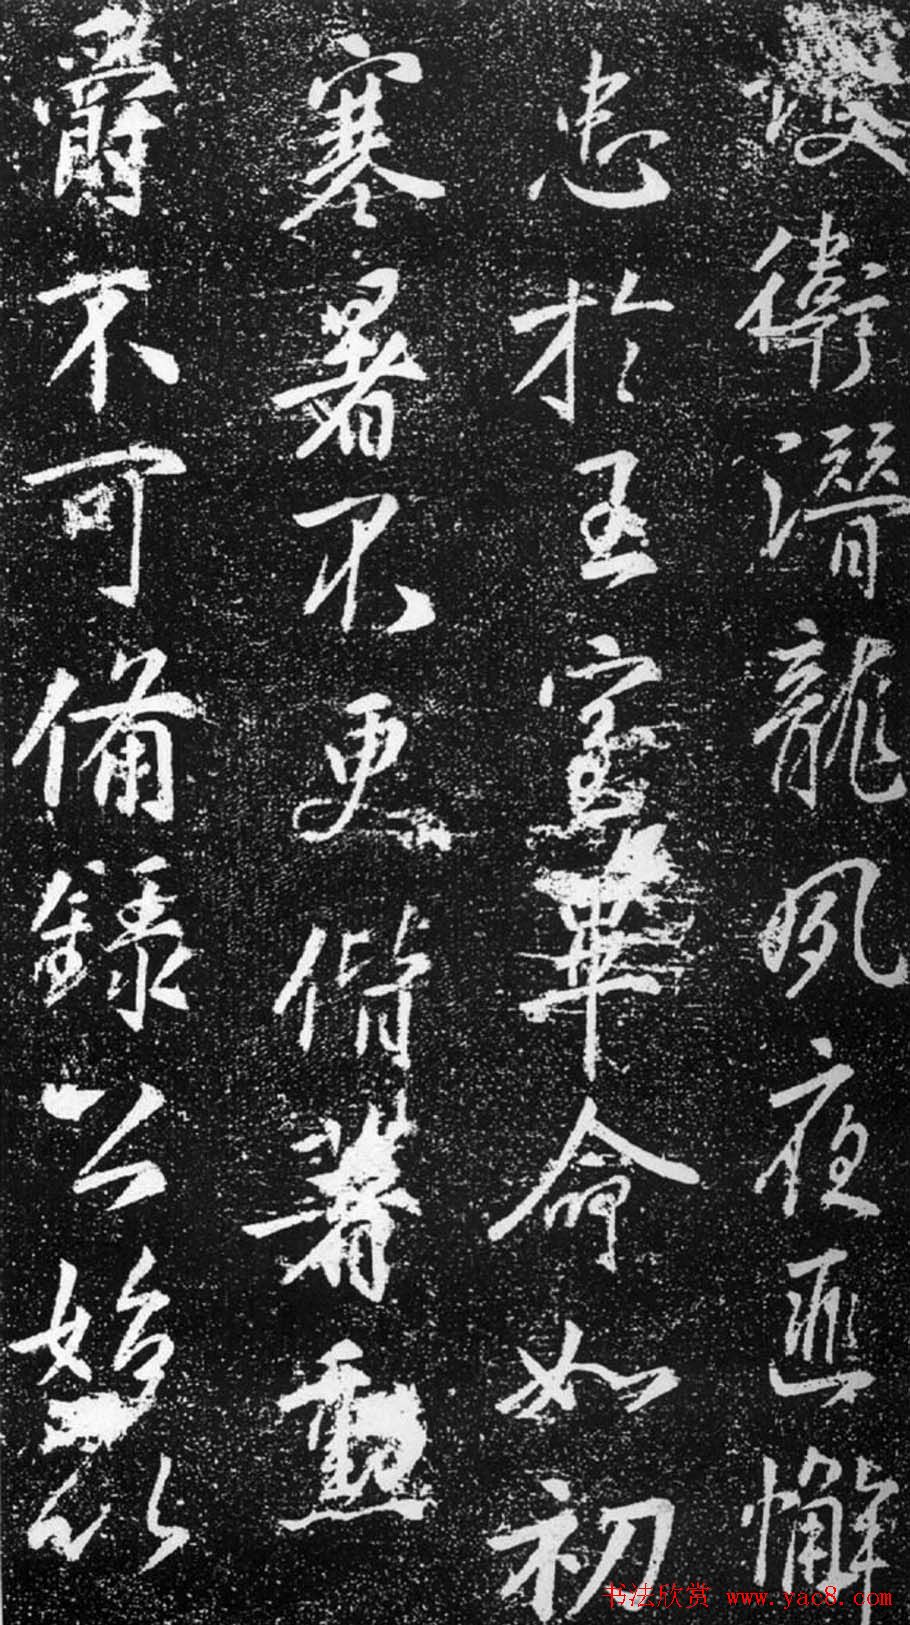 衛潛龍夙夜匪懈
忠於王室畢命如初
寒暑不更偕著勳
爵不可備錄公始以
书法欣赏 www.yac8.com